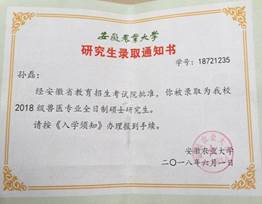 安徽农业大学
研究生录取通知书
学号：18721235
孙磊：
经安徽省教育招生考试院批准，你被录取为我校
2018级兽医专业全日制硕士研究生。
请按《入学须知》办理报到手续。
安徽农业大学
二〇一八年六月一日